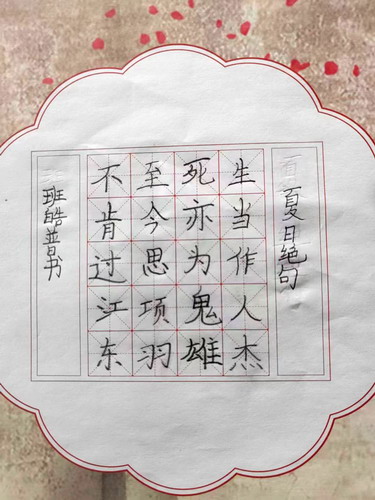 夏日绝句
生当作人杰
死亦为鬼雄
至今思项羽
不肯过江东
班皓普书